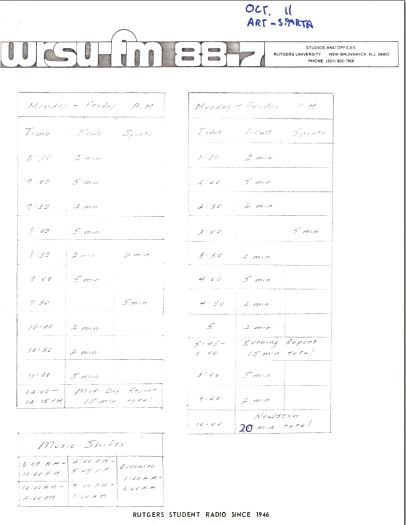 OCT. 11
ART - SPARTA
wrsu-fm 88.7
STUDIOS AND OFFICES
RUTGERS UNIVERSITY NEW BRUNSWICK, N.J. 08903
PHONE (201) 932-7800
Monday - Friday A.M
Time News Sports
6:30 2 min
7:00 5 min
7:30 2 min
8:00 5 min
8:30 2 min 2 min
9:00 5 min
9:30 5 min
10:00 2 min
10:30 2 min
11:00 5 min
12:00 - 12:15 PM Mid-Day Report
15 min total
Monday - Friday P.M
Time News Sports
1:30 2 min
2:00 5 min
2:30 2 min
3:00 5 min
3:30 2 min
4:00 5 min
4:30 2 min
5 2 min
5:45 - 6:00 Evening Report
15 min total
5 min
9:00 2 min
10:00 Newscan
20 min total
Music Shifts
Overnite
RUTGERS STUDENT RADIO SINCE 1946